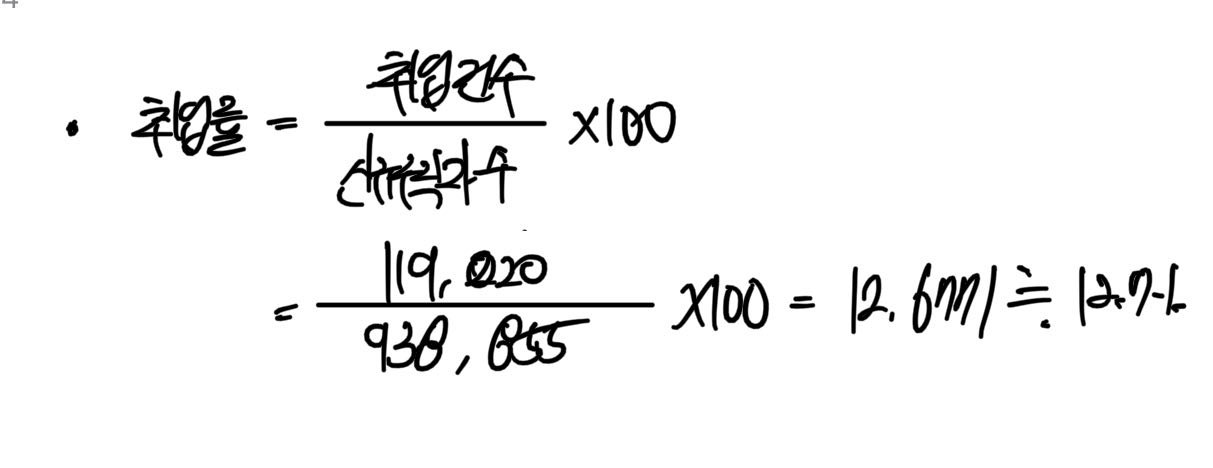 · 취업률 = 취업건수 / 신규구직자수 ×100
= 119,020 / 938,855 ×100 = 12.6771 ≒ 12.7%